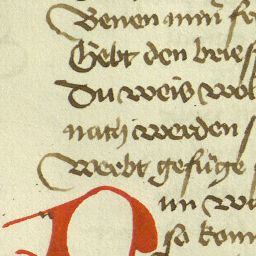 Benen mim
Gebt den brieff
Du weis wol
nach werden
Werbt gefüge
im
so kom